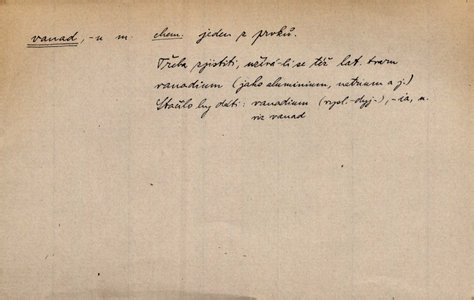 vanad, -u m. chem. jeden z prvků.
Třeba zjistiti, neužívá-li se též lat. tvaru
vanadium (jako aluminium, natrium a j.)
Stačilo by dáti: vanadium (vysl. -dyj-), -ia, n.
viz vanad